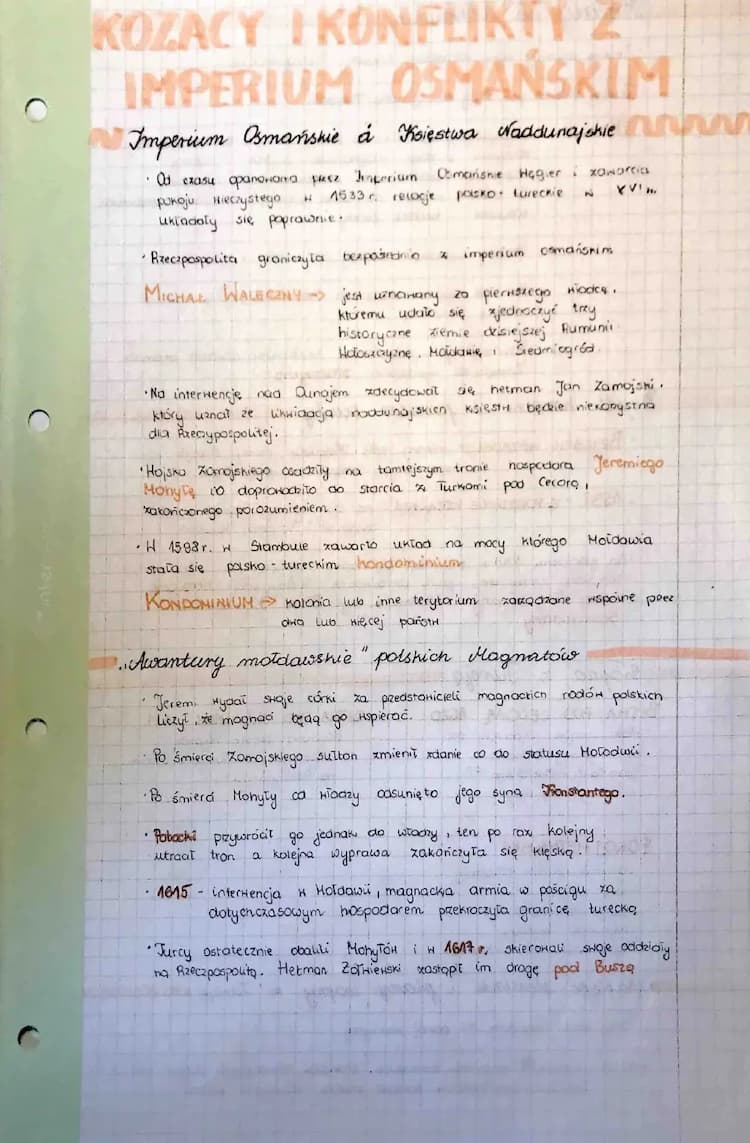 KOZACY I KONFLIKTY Z
IMPERIUM OSMAŃSKIM
Imperium Osmańskie á Księstwa Naddunajskie
• Od czasu opanowania przez Imperium Osmańskie Węgier i zawarcia
pokoju wieczystego w 1533 r. relacje polsko-tureckie w XVI w.
układały się poprawnie.
• Rzeczpospolita graniczyła bezpośrednio z imperium osmańskim
MICHAŁ WALECZNY → jest uznawany za pierwszego władcę,
któremu udało się zjednoczyć trzy
historyczne ziemie dzisiejszej Rumunii
Wołoszczyznę, Mołdawię i Siedmiogród.
• Na interwencję nad Dunajem zdecydował się hetman Jan Zamojski,
który uznał że likwidacja naddunajskich księstw będzie niekorzystna
dla Rzeczypospolitej.
• Wojska Zamojskiego osadziły na tamtejszym tronie hospodara Jeremiego
Mohyłę co doprowadziło do starcia z Turkami pod Cecorą,
zakończonego porozumieniem.
• W 1598 r. w Stambule zawarto układ na mocy którego Mołdawia
stała się polsko-tureckim kondominium
KONDOMINIUM → kolonia lub inne terytorium zarządzane wspólnie przez
dwa lub więcej państw
„Awantury mołdawskie" polskich Magnatów
• Jerem. wydał swoje córki za przedstawicieli magnackich rodów polskich
Liczył, że magnaci będą go wspierać.
• Po śmierci Zamojskiego sułtan zmienił zdanie co do statusu Mołodwii.
• Po śmierci Mohyły od władzy odsunięto jego syna Konstantego.
• Potocki przywrócił go jednak do władzy, ten po raz kolejny
utracił tron a kolejna wyprawa zakończyła się klęską.
• 1615 - interwencja w Mołdawii, magnacka armia w pościgu za
dotychczasowym hospodarem przekroczyła granicę turecką
• Turcy ostatecznie obalili Mohyłów i w 1617 r. skierowali swoje oddziały
na Rzeczpospolitą. Hetman Żółkiewski zastąpił im drogę pod Buszą